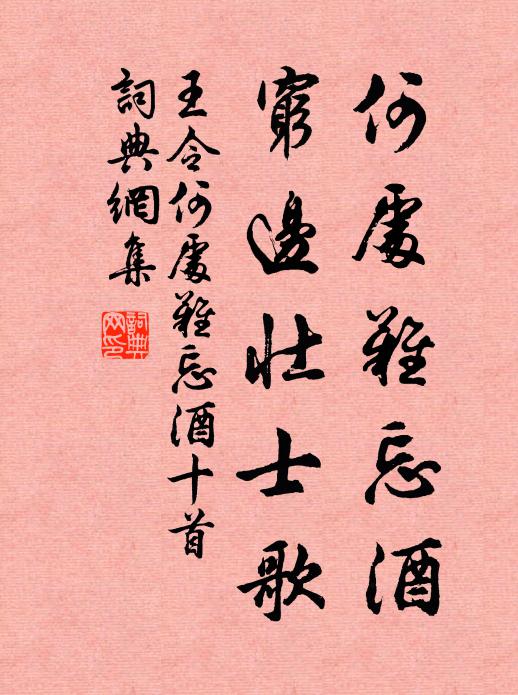 何處難忘酒
窮邊壯士歌
王令何處難忘酒十首
詞典網集
詞典網印